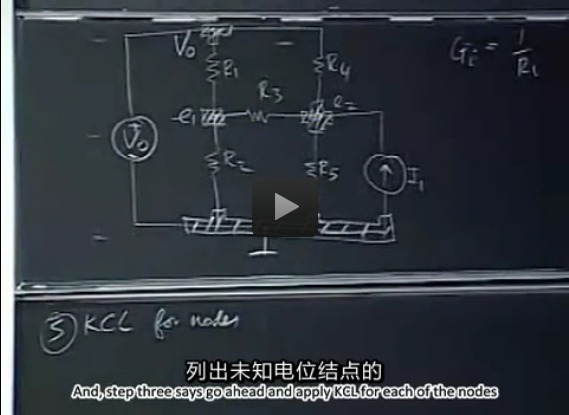 V₀
R₁
R₄
Gᵢ = 1/Rᵢ
R₃
e₁
e₂
V₀
R₂
R₅
I₁
③ KCL for nodes
列出未知电位结点的
And, step three says go ahead and apply KCL for each of the nodes